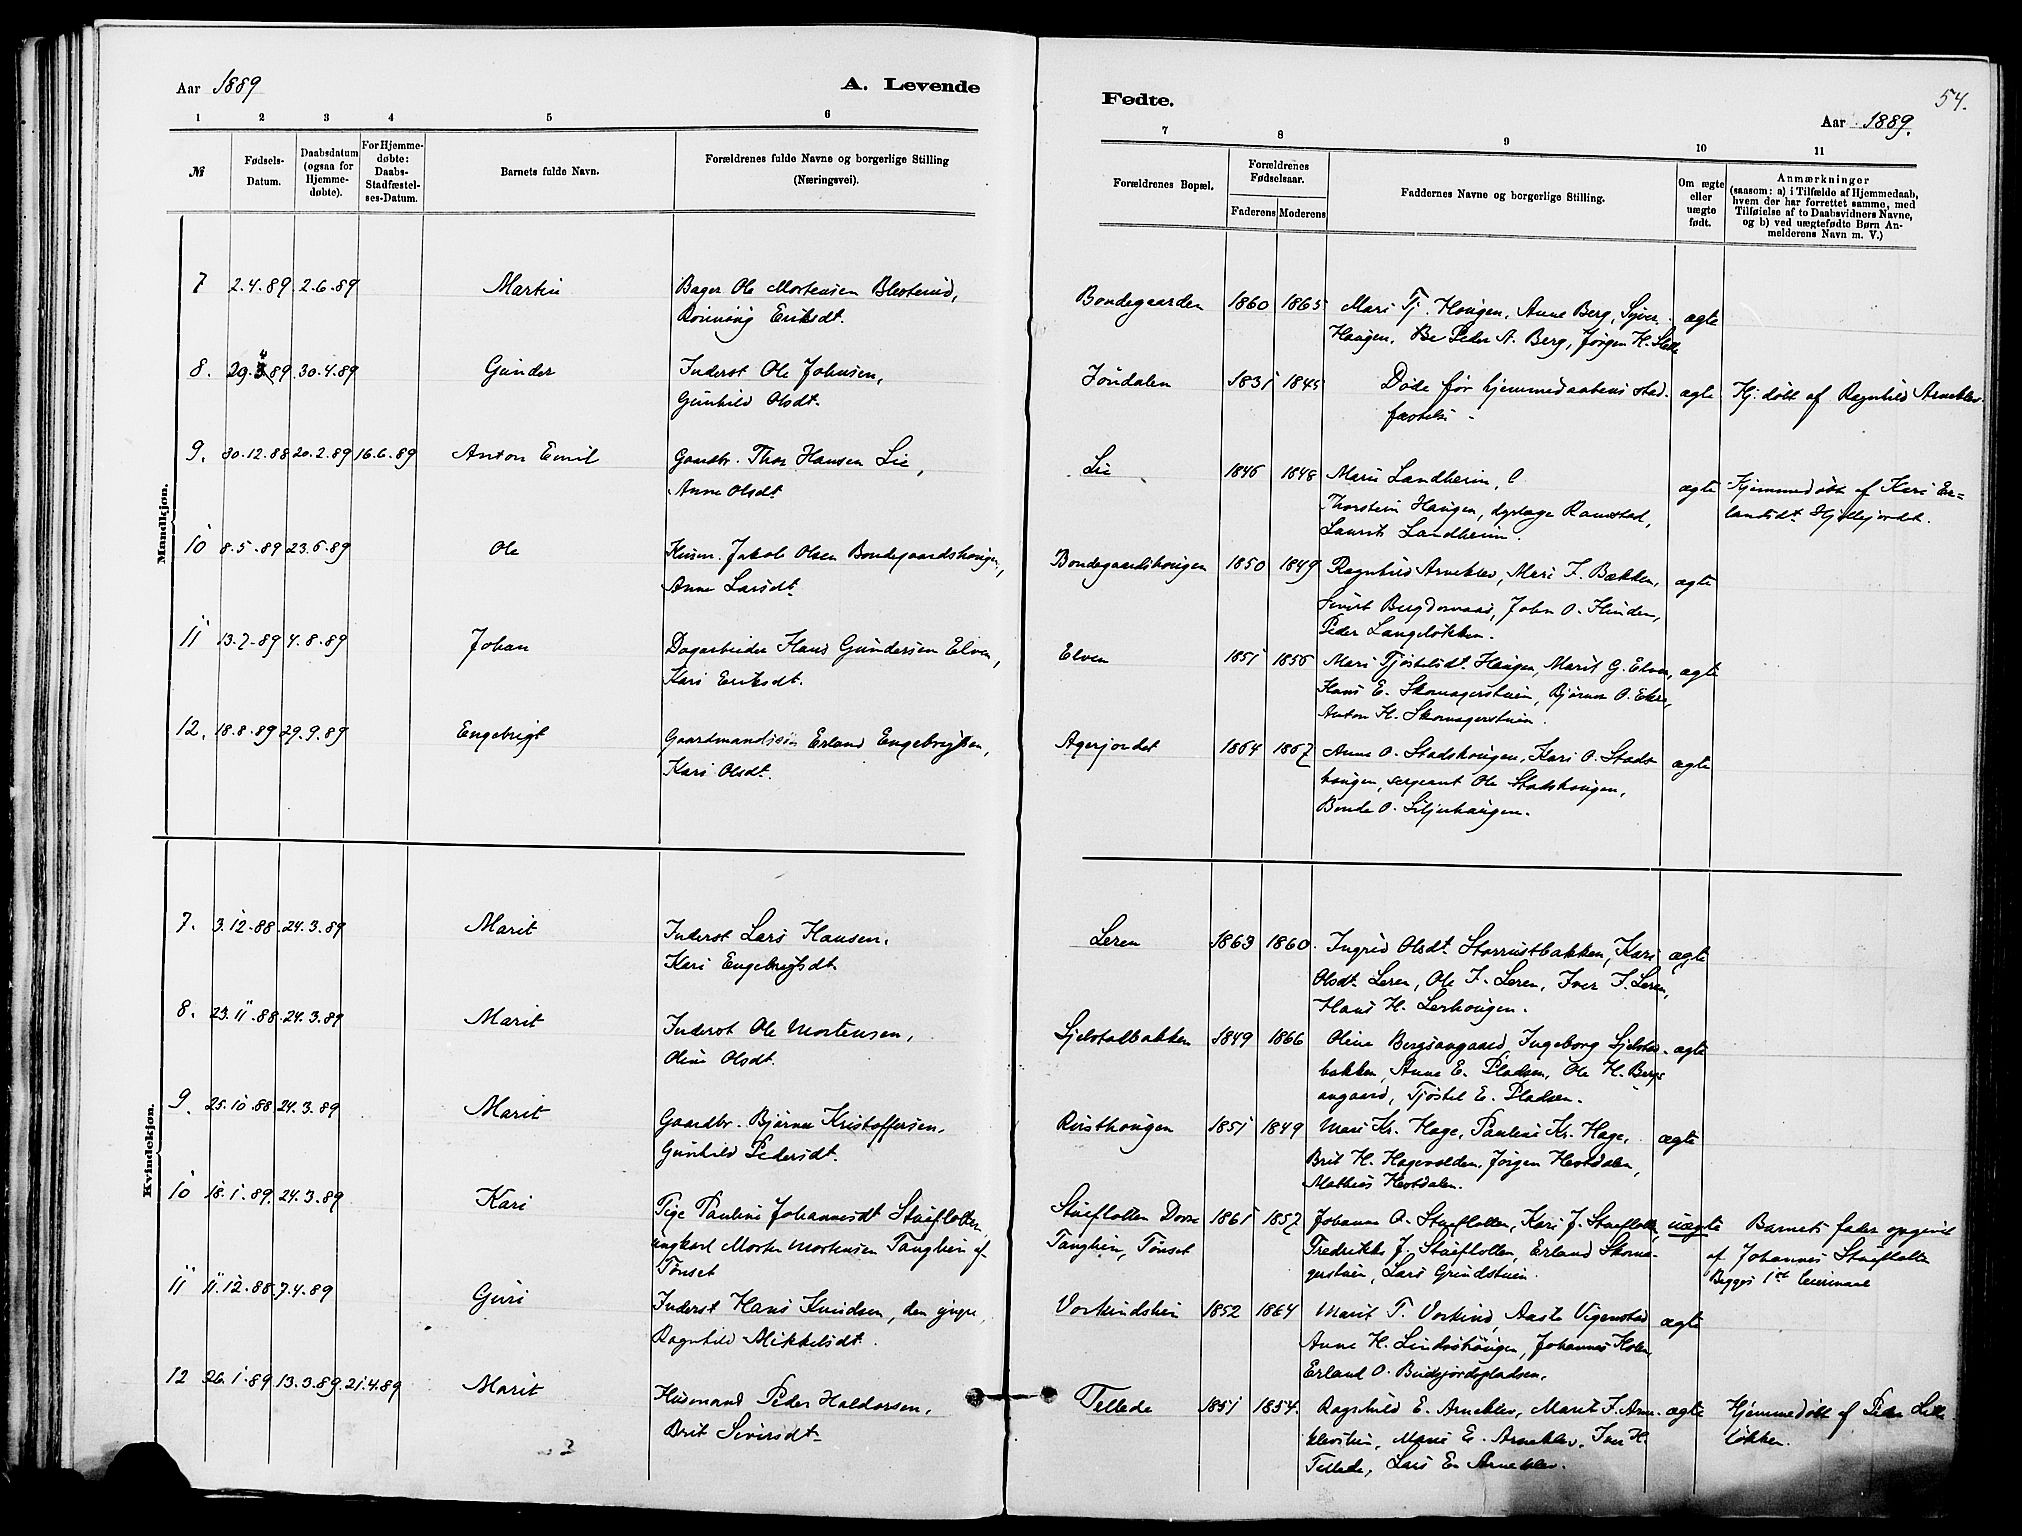 Aar 1889
A. Levende
1 2 3 4 5 6
№
Fødsels-Datum.
Daabsdatum (ogsaa for Hjemme-døbte).
For Hjemme-døbte: Daabs-Stadfæstel-ses-Datum.
Barnets fulde Navn.
Forældrenes fulde Navne og borgerlige Stilling
(Næringsvei).
Mandkjøn.
7 2.4.89 2.6.89 Martin Bager Ole Mortensen
Rønnaug Eriksdt.
8. 29. 89 30.4.89 Gunder Inderst Ole Johnsen,
Gunhild Olsdt.
9. 30.12.88 20.2.89 16.6.89 Anton Emil Gaardbr. Thor Hansen Lie,
Anne Olsdt
10 8.5.89 23.6.89 Ole Husm. Jakob Olsen Bondegaardshaugen,
Anne Larsdt.
11 13.7.89 4.8.89 Johan Dagarbeider Hans Gundersen Elven,
Kari Eriksdt.
12. 18.8.89 29.9.89 Engebrigt Gaardmandssøn Erland Engebrigtsen,
Kari Olsdt.
Kvindekjøn.
7. 3.12.88 24.3.89 Marit Inderst Lars Hansen,
Kari Engebrigtsdt.
8. 23.11.88 24.3.89 Marit Inderst Ole Mortensen,
Oline Olsdt.
9. 25.10.88 24.3.89 Marit Gaardbr. Bjørner Kristoffersen,
Gunhild Pedersdt.
10 18.1.89. 24.3.89 Kari Pige Pauline Johannesdt Stueflotten,
ungkarl Morten Mortensen Tanghein af
Tønset
11 11.12.88 7.4.89 Guri Inderst Hans Knudsen, den yngre,
Ragnhild Mikkelsdt.
12 26.1.89 13.3.89 21.4.89 Marit Husmand Peder Haldorsen,
Brit Siversdt.
Fødte.
54.
Aar 1889.
7 8 9 10 11
Forældrenes Bopæl.
Forældrenes Fødselsaar.
Faderens Moderens
Faddernes Navne og borgerlige Stilling.
Om ægte eller uægte født.
Anmærkninger
(saasom: a) i Tilfælde af Hjemmedaab,
hvem der har forrettet samme, med
Tilføielse af to Daabsvidners Navne,
og b) ved uægtefødte Børn An-
melderens Navn m. V.)
Bondegaarden 1860 1865 Mari Tj. Haugen, Anne Berg, Syver ægte
Haugen, Peder A. Berg, Jørgen H.
Jøndalen 1835 1845 Døde før hjemmedaabens stad- ægte Hj. døbt af Ragnhild Arneklev
fæstelse.
Lie 1846 1848 Mari Landheim, ægte Hjemmedøbt af Kari Er-
Thorstein Haugen, dyrlæge Ramstad, landsdt.
Laurits Landheim.
Bondegaardshaugen 1850 1849 Ragnhild Arneklev, Mari J. Bækken, ægte
Sivert John O.
Peder Langeløkken.
Elven 1851 1856 Mari Tjøstelsdt. Haugen, Marit G. Elven, ægte
Hans E. Skomagerstuen, Bjørner O.
Anton H. Skomagerstuen.
Agerjordet 1864 1867 Anne O. Stadshaugen, Kari O. Stads- ægte
haugen, sergeant Ole Stadshaugen,
O. Liljehaugen.
Leren 1863 1860 Ingrid Olsdt. Storrustbakken, Kari ægte
Olsdt. Leren, Ole I. Leren, Iver I. Leren,
Hans H. Lerhaugen.
Sjelstadbakken 1849 1866 Oline Bergsangaard, Ingeborg Sjelstad- ægte
bakken, Anne E. Pladsen, Ole H. Bergs-
angaard, Tjøstel E. Pladsen.
Rusthaugen 1851 1849 Mari Kr. Hage, Pauline Kr. Hage, ægte
Brit H. Hagevolden, Jørgen
Mathias
Stueflotten Dovre 1865 1857 Johanne O. Stueflotten, Kari J. Stueflotten, uægte Barnets fader opgivet
Tanghein, Tønset Fredrikke J. Stueflotten, Erland Skoma- af Johannes Stueflotten
gerstuen, Lars Grindstuen. Begges 1ste leiermaal
Vorkindshein 1852 1864 Marit T. Vorkind, Aaste Vigenstad ægte
Anne H. Lindsøhaugen, Johannes Holen,
Erland O.
Tellede 1851 1854. Ragnhild E. Arneklev, Marit I. Arne- ægte Hjemmedøbt af Peder Lille
klevstuen, Mari E. Arneklev, Iver H. løkken.
Tellede, Lars E. Arneklev.